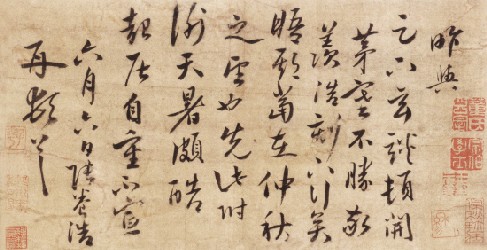 昨與
足下玄談頓開
茅塞不勝敬
羨浩刻下行矣
晤期當在仲秋
之望也先此附
謝天暑頗酷
起居自重不宣
六月六日養浩
再頓首